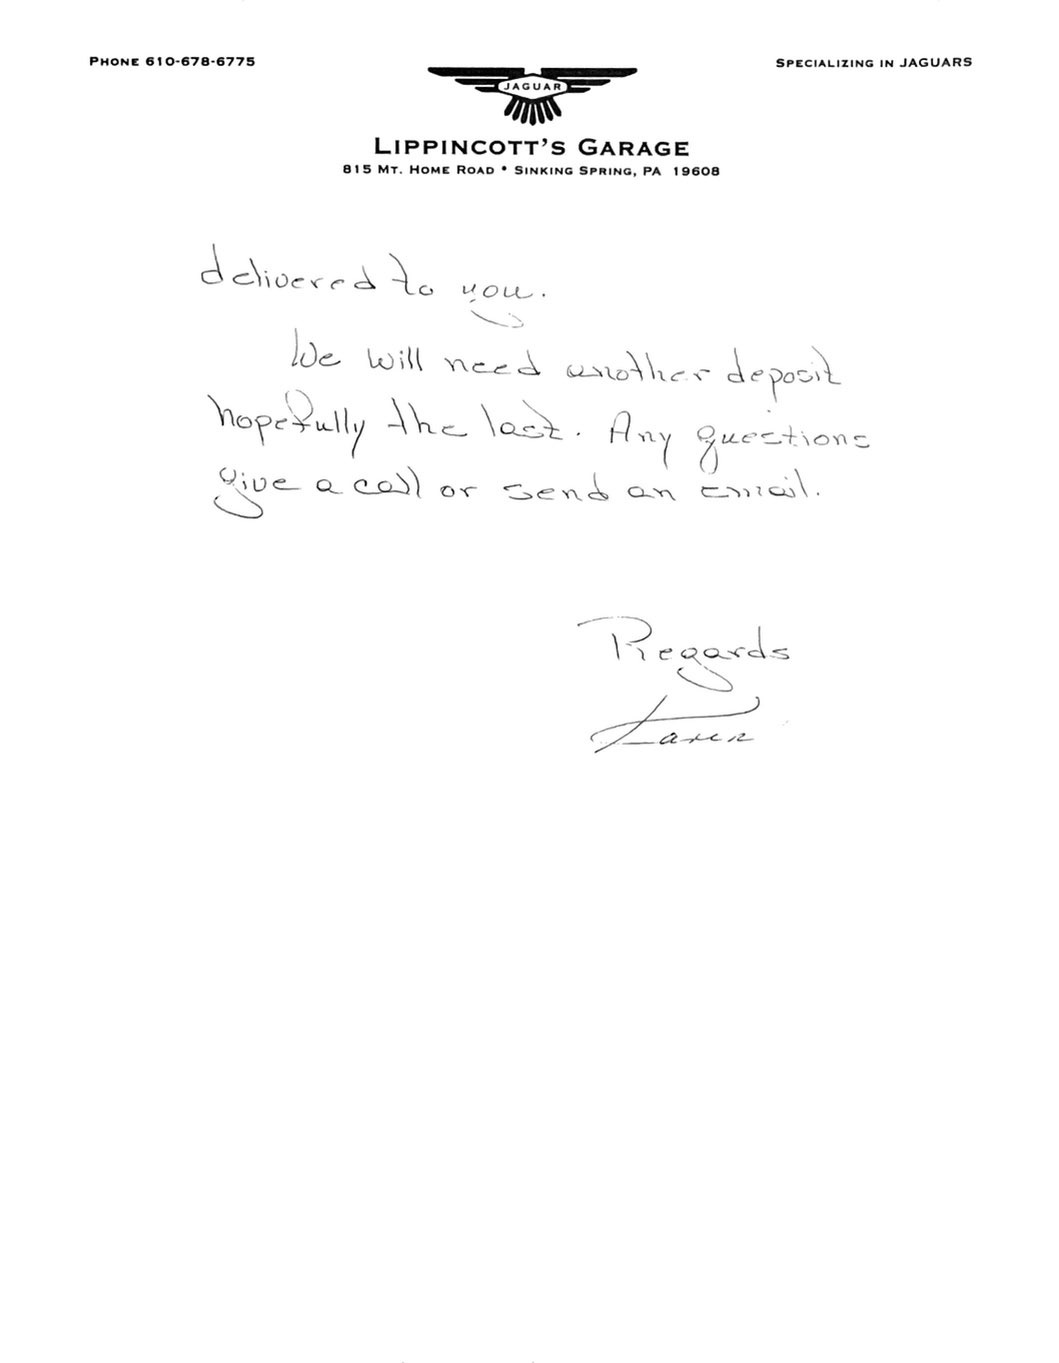 PHONE 610-678-6775
SPECIALIZING IN JAGUARS
JAGUAR
LIPPINCOTT'S GARAGE
815 MT. HOME ROAD • SINKING SPRING, PA 19608
delivered to you.
We will need another deposit
hopefully the last. Any questions
give a call or send an email.
Regards
Karen